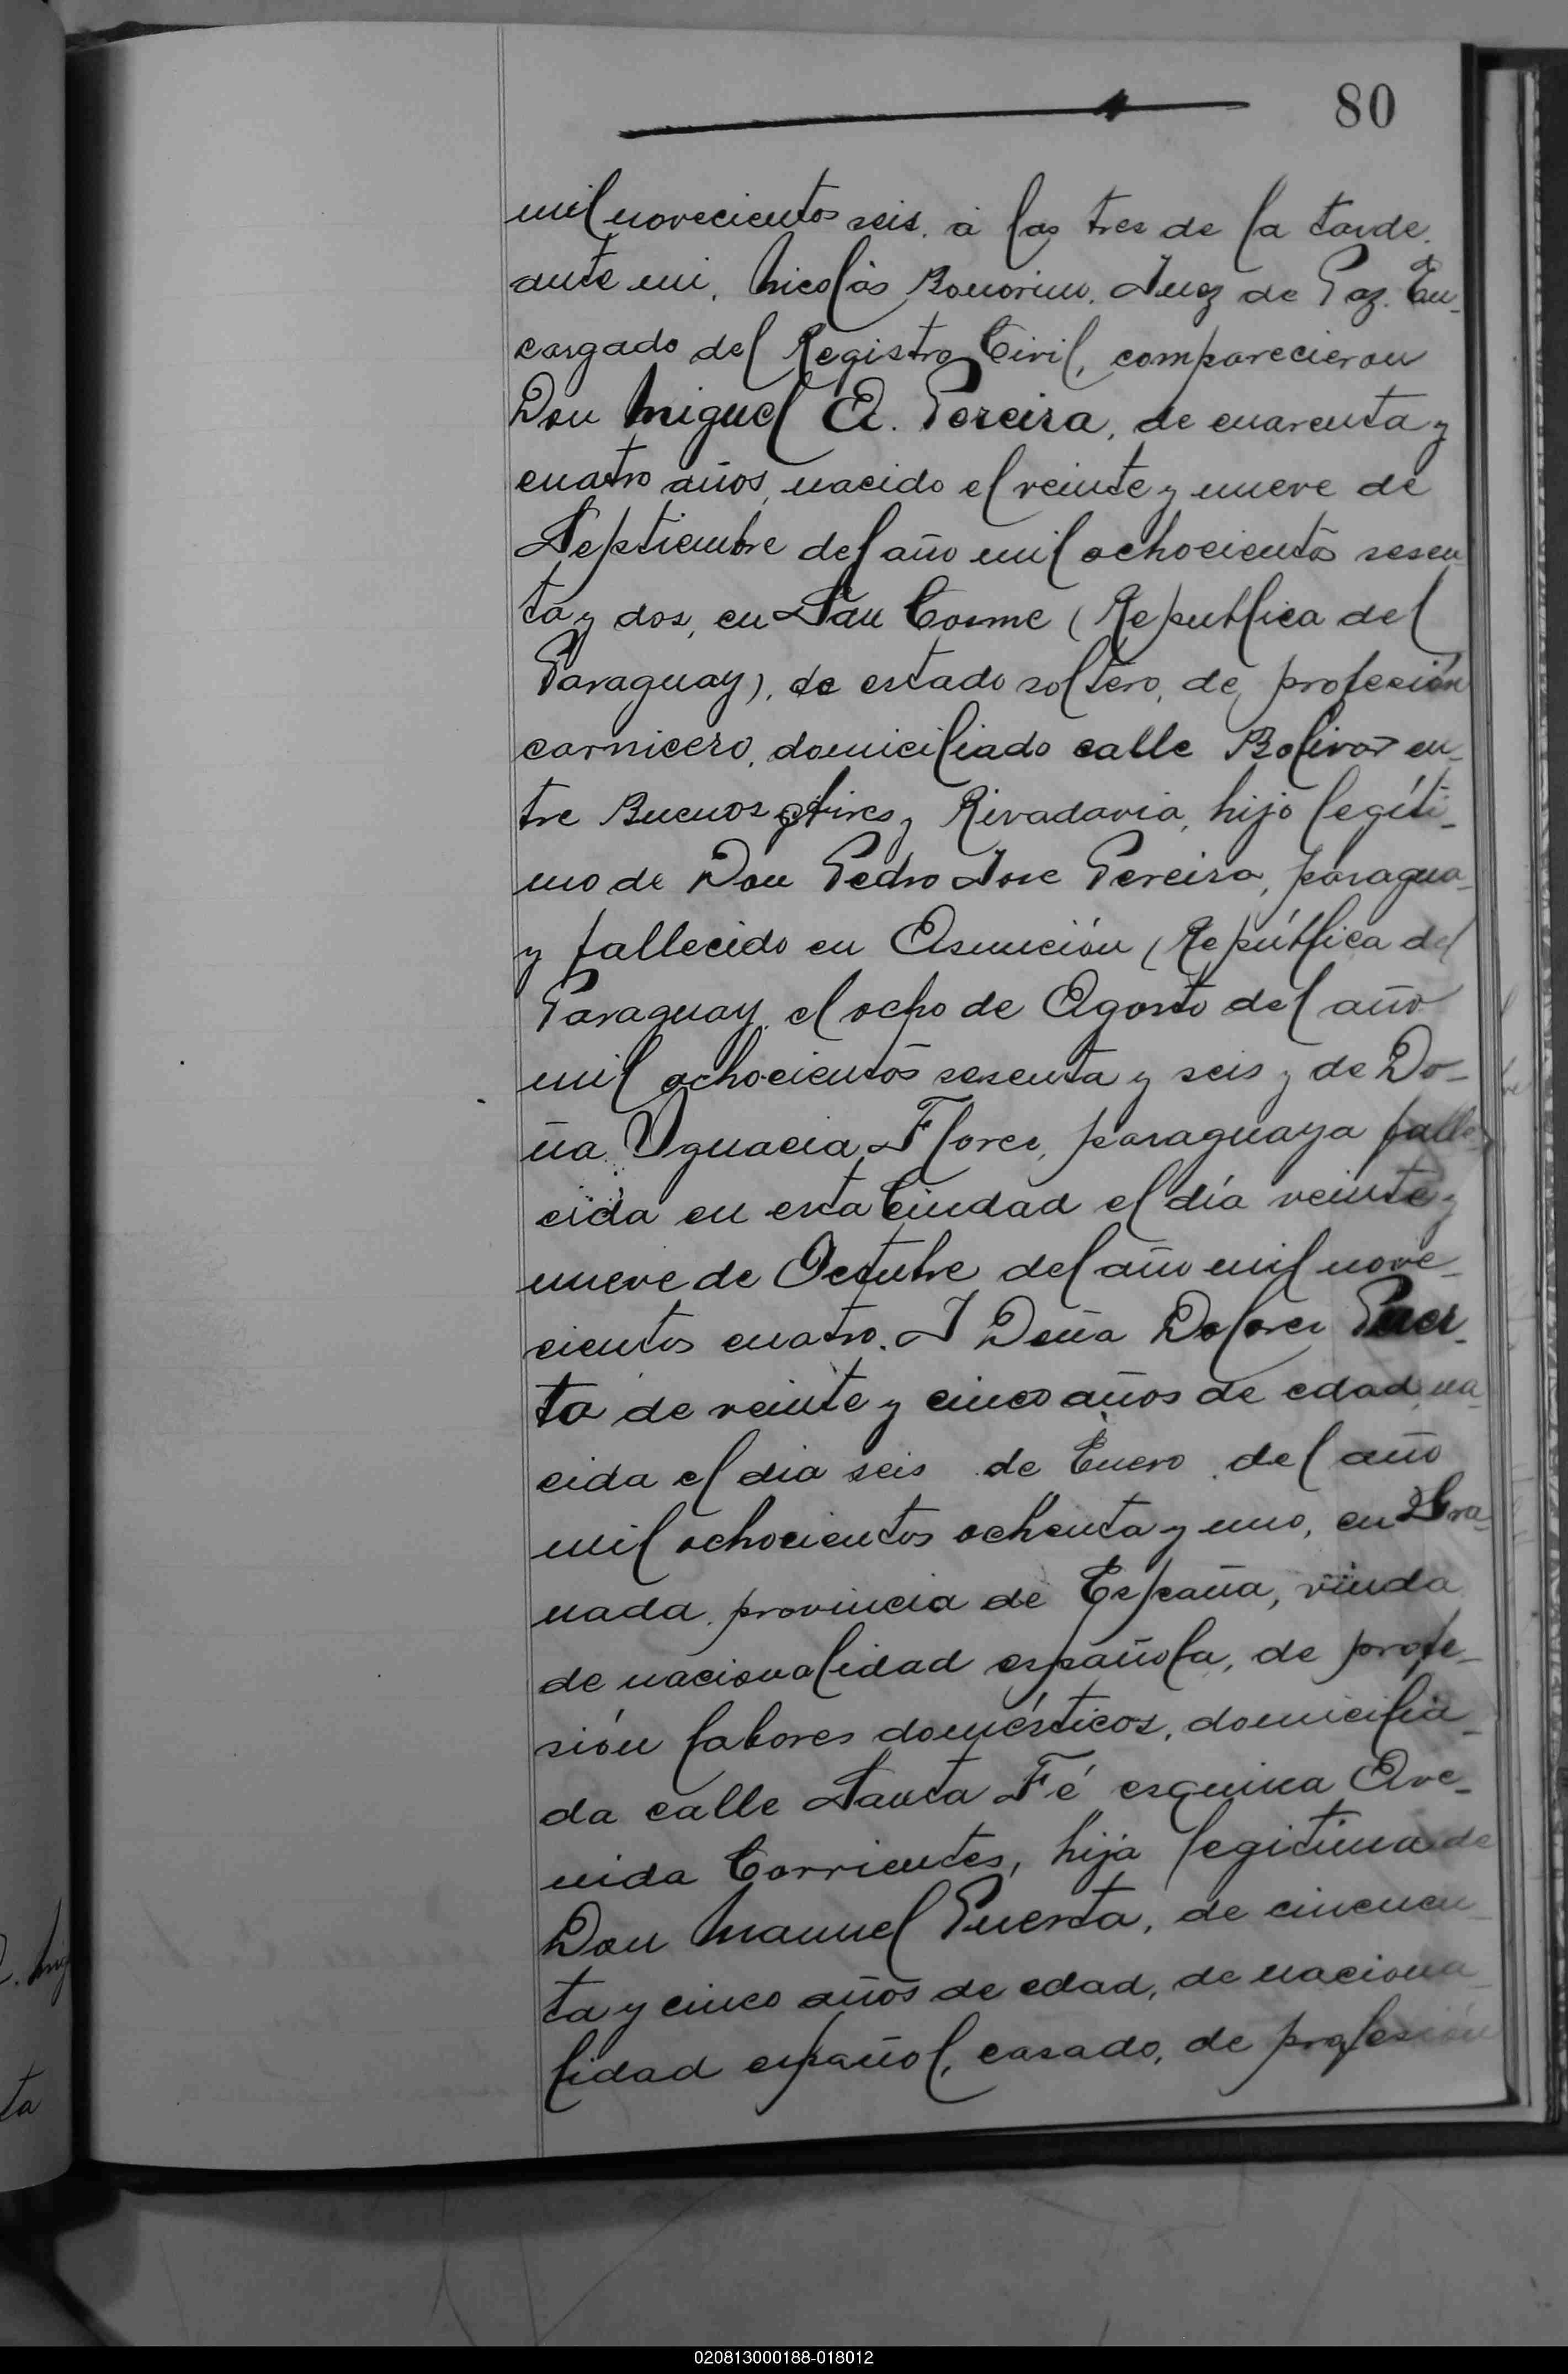 80
mil novecientos seis. á las tres de la tarde.
ante mi, Nicolás Bonorino. Juez de Paz. En-
cargado del Registro Civil, comparecieron
Don Miguel A. Pereira, de cuarenta y
cuatro años, nacido el veinte y nueve de
Septiembre del año mil ochocientos sesen
ta y dos, en San Cosme (Republica del
Paraguay), de estado soltero, de profesión
carnicero, domiciliado calle Bolivar en-
tre Buenos Aires y Rivadavia, hijo legíti-
mo de Don Pedro Jose Pereira, paragua-
y fallecido en Asunción (República del
Paraguay, el ocho de Agosto del año
mil ochocientos sesenta y seis y de Do-
ña Ygnacia Flores, paraguaya falle
cida en esta Ciudad el día veinte y
nueve de Octubre del año mil nove-
cientos cuatro. I Doña Dolores Puer-
ta de veinte y cinco años de edad, na
cida el dia seis de Enero del año
mil ochocientos ochenta y uno, en Gra-
nada, provincia de España, viuda
de nacionalidad española, de profe-
sión labores domésticos, domicilia-
da calle Santa Fé esquina Ave-
nida Corrientes, hija legitima de
Don Manuel Puerta, de cincuen
ta y cinco años de edad, de naciona
lidad español, casado, de profesión
ta
020813000188-018012